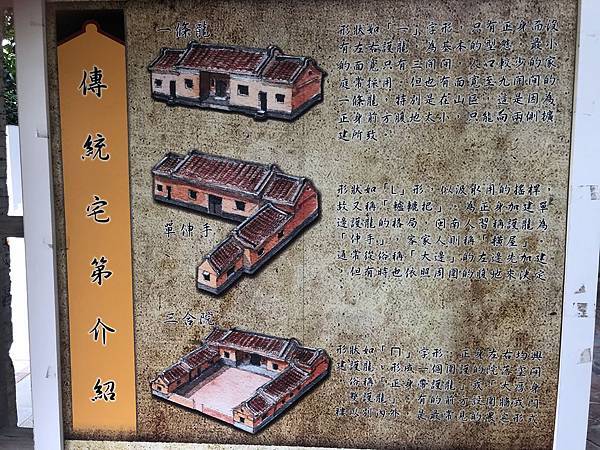 傳統宅第介紹
一條龍
形狀如「一」字形,只有正身而沒
有左右護龍,為基本型態,最小
的面寬只有三開間,人口較少的家
庭常採用,但也有長至九開間的
一條龍,特別是在山區,這是因為
正身前方腹地太小,只能向兩側擴
建所致。
單伸手
形狀如「L」形,似汲取用的搖桿,
故又稱「轆轤把」,為正身加建單
邊護龍的格局。閩南人習稱護龍為
「伸手」,客家人則稱「橫屋」,
通常從俗稱「大邊」的左邊先加建
,但有時也依照周圍的腹地來決定
。
三合院
形狀如「ㄇ」字形,正身的左右均興
建護龍